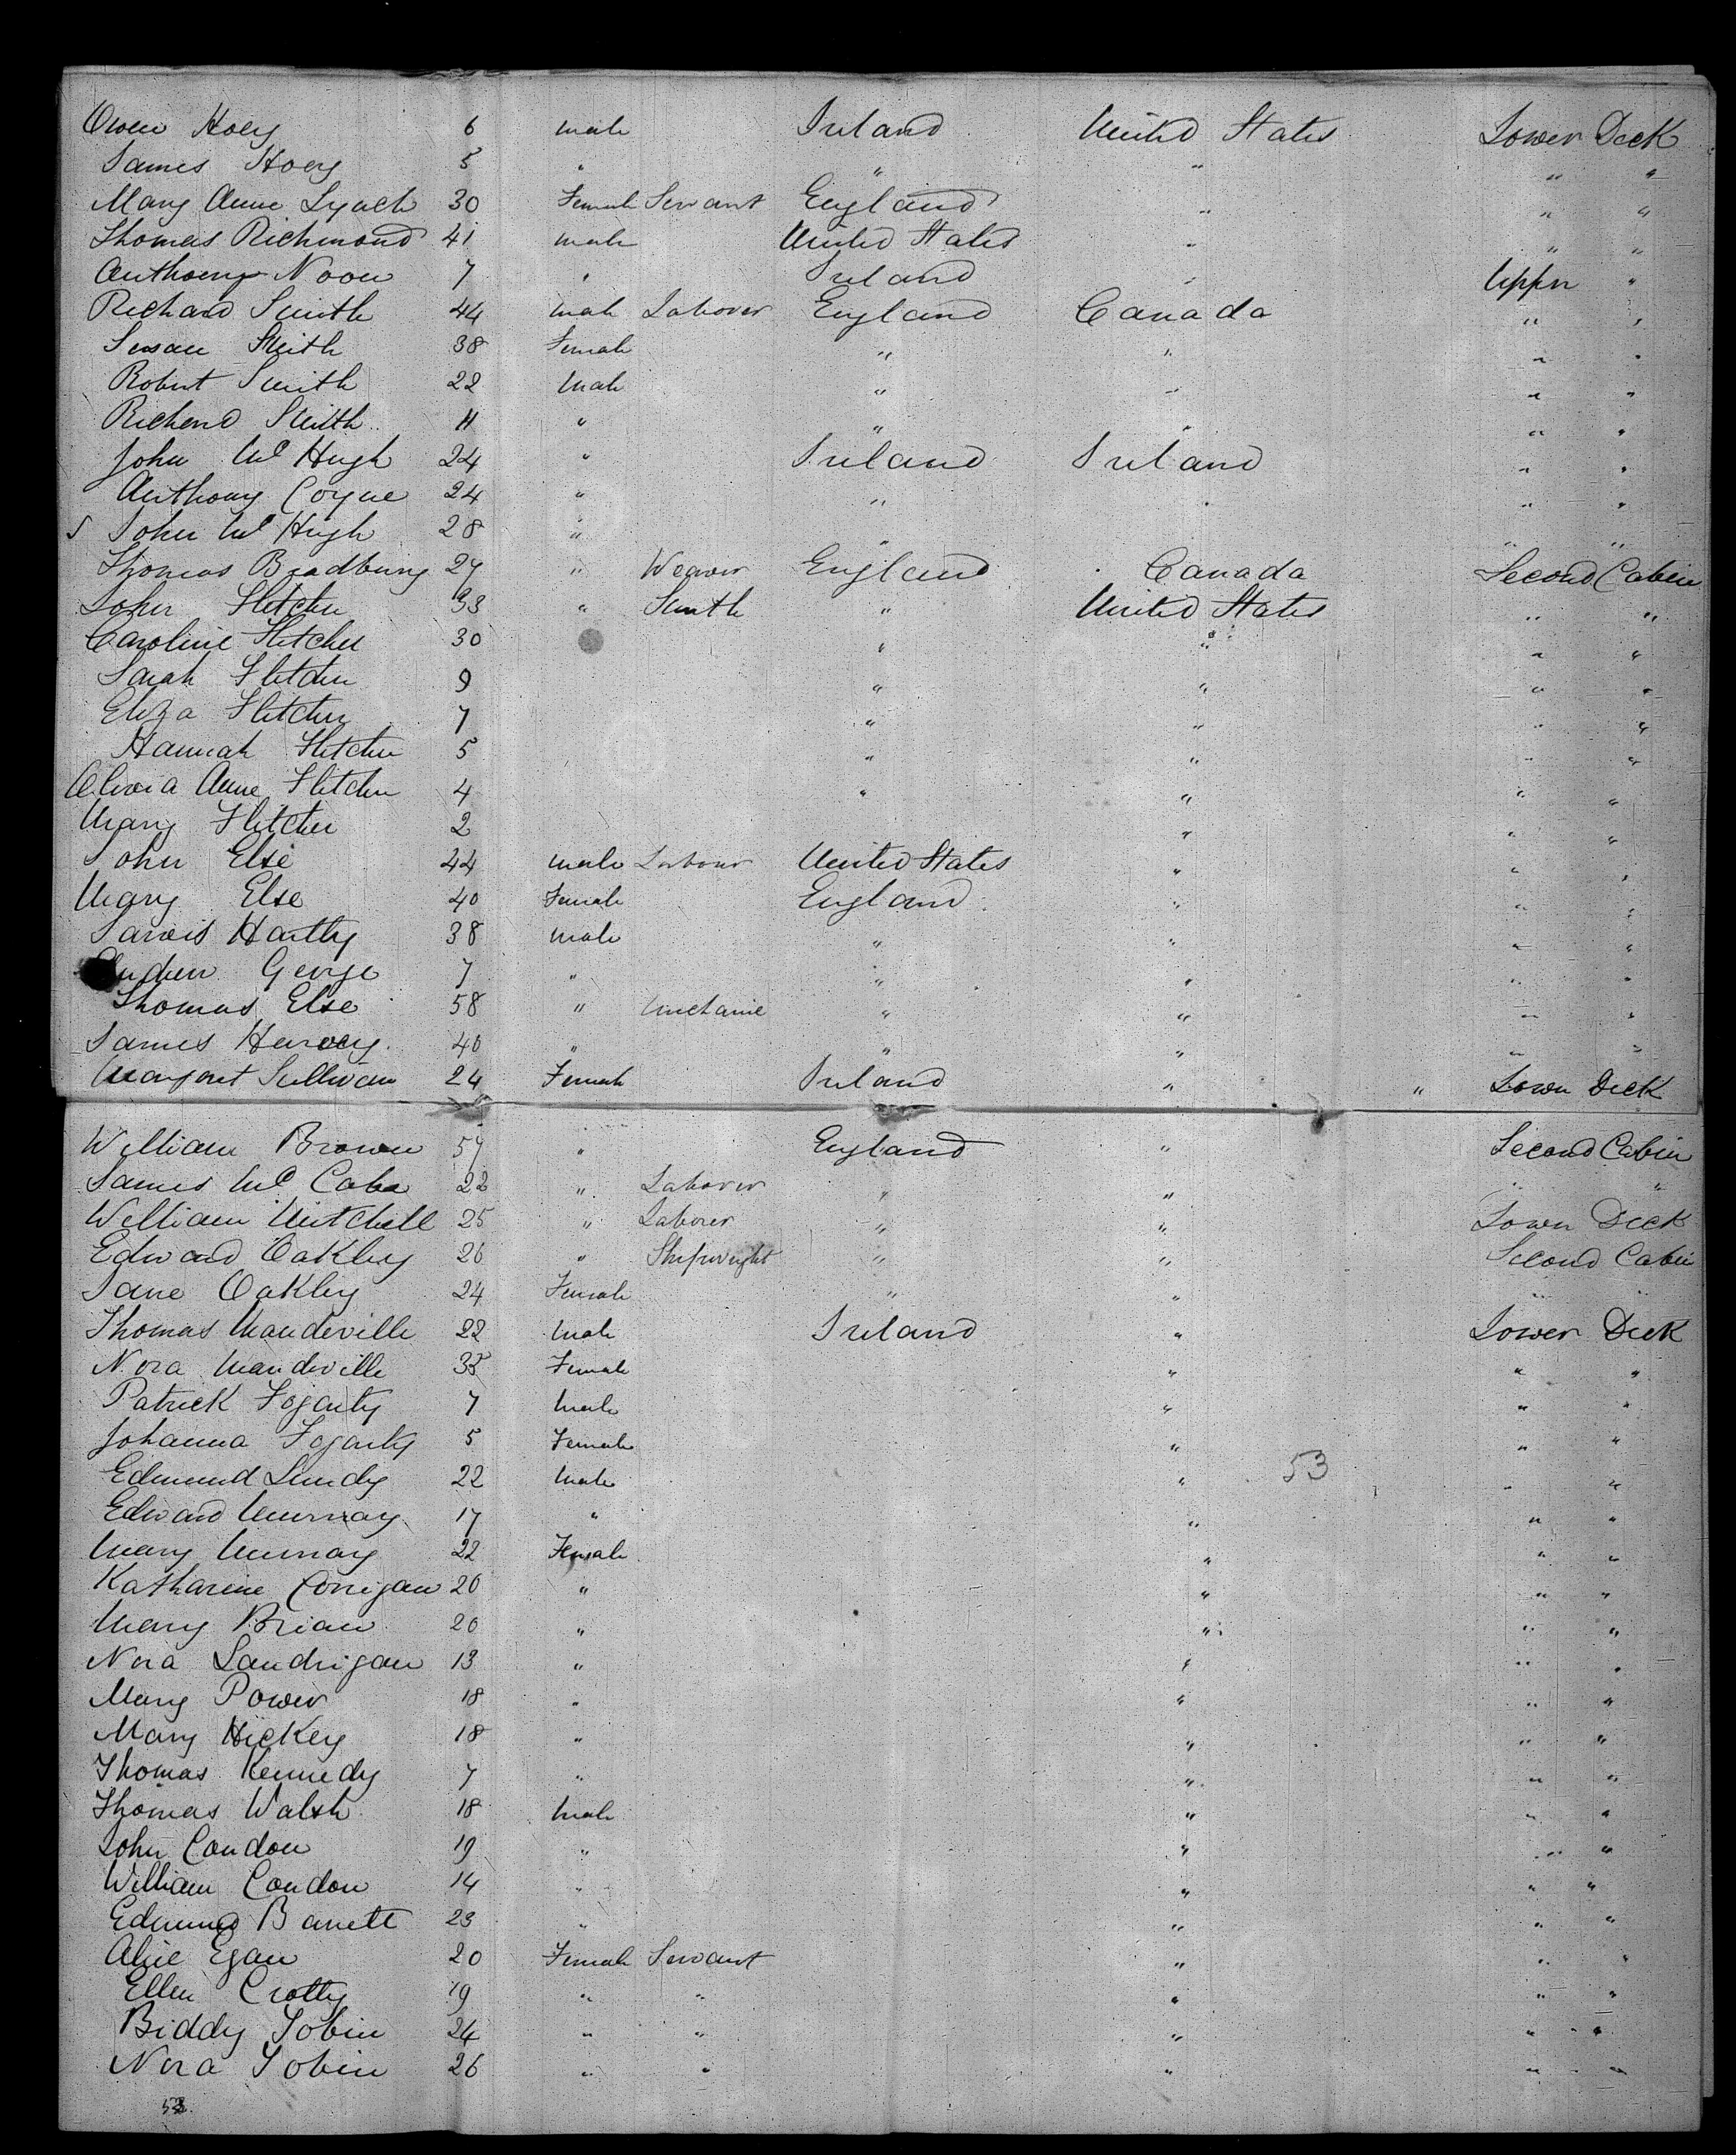 Owen Hoey 6 male Ireland United States Lower Deck
James Hoey 5 " " " " "
Mary Anne Lynch 30 Female Servant England " " "
Thomas Richmond 41 male United States " " "
Anthony Noon 7 " Ireland " Upper "
Richard Smith 44 male Laborer England Canada " "
Susan Smith 38 Female " " " "
Robert Smith 22 male " " " "
Richard Smith 11 " " " " "
John McHugh 24 " Ireland Ireland " "
Anthony Coyne 24 " " " " "
John McHugh 28 " " " "
Thomas Bradbury 27 " Weaver England Canada Second Cabin
John Fletcher 33 " Smith " United States " "
Caroline Fletcher 30 " " " "
Sarah Fletcher 9 " " " "
Eliza Fletcher 7 " " " "
Hannah Fletcher 5 " " " "
Olivia Anne Fletcher 4 " " " "
Mary Fletcher 2 " " "
John Else 44 male Labour United States " " "
Mary Else 40 Female England " " "
Jarvis Hartly 38 male " " " "
Andrew George 7 " " " " "
Thomas Else 58 " Mechanic " " " "
James Harvey 40 " " " " "
Margaret Sullivan 24 Female Ireland " " Lower Deck
William Brown 57 " England " Second Cabin
James McCabe 22 " Laborer " " " "
William Mitchell 25 " Laborer " " Lower Deck
Edward Oakley 26 " Shipwright " " Second Cabin
Jane Oakley 24 Female " " " "
Thomas Mandeville 22 male Ireland " Lower Deck
Nora Mandeville 35 Female " " "
Patrick Fogarty 7 male " " "
Johanna Fogarty 5 Female " " "
Edmund Lundy 22 male " 53 " "
Edward Murray 17 " " " "
Mary Murray 22 Female " " "
Katharine Corrigan 20 " " " "
Mary Brian 20 " " " "
Nora Landrigan 13 " " " "
Mary Power 18 " " " "
Mary Hickey 18 " " " "
Thomas Kennedy 7 " " " "
Thomas Walsh 18 male " " "
John Condon 19 " " " "
William Condon 14 " " " "
Edmund Barrett 23 " " " "
Alice Egan 20 Female Servant " " "
Ellen Crotty 19 " " " " "
Biddy Tobin 24 " " " " "
Nora Tobin 26 " " " " "
53